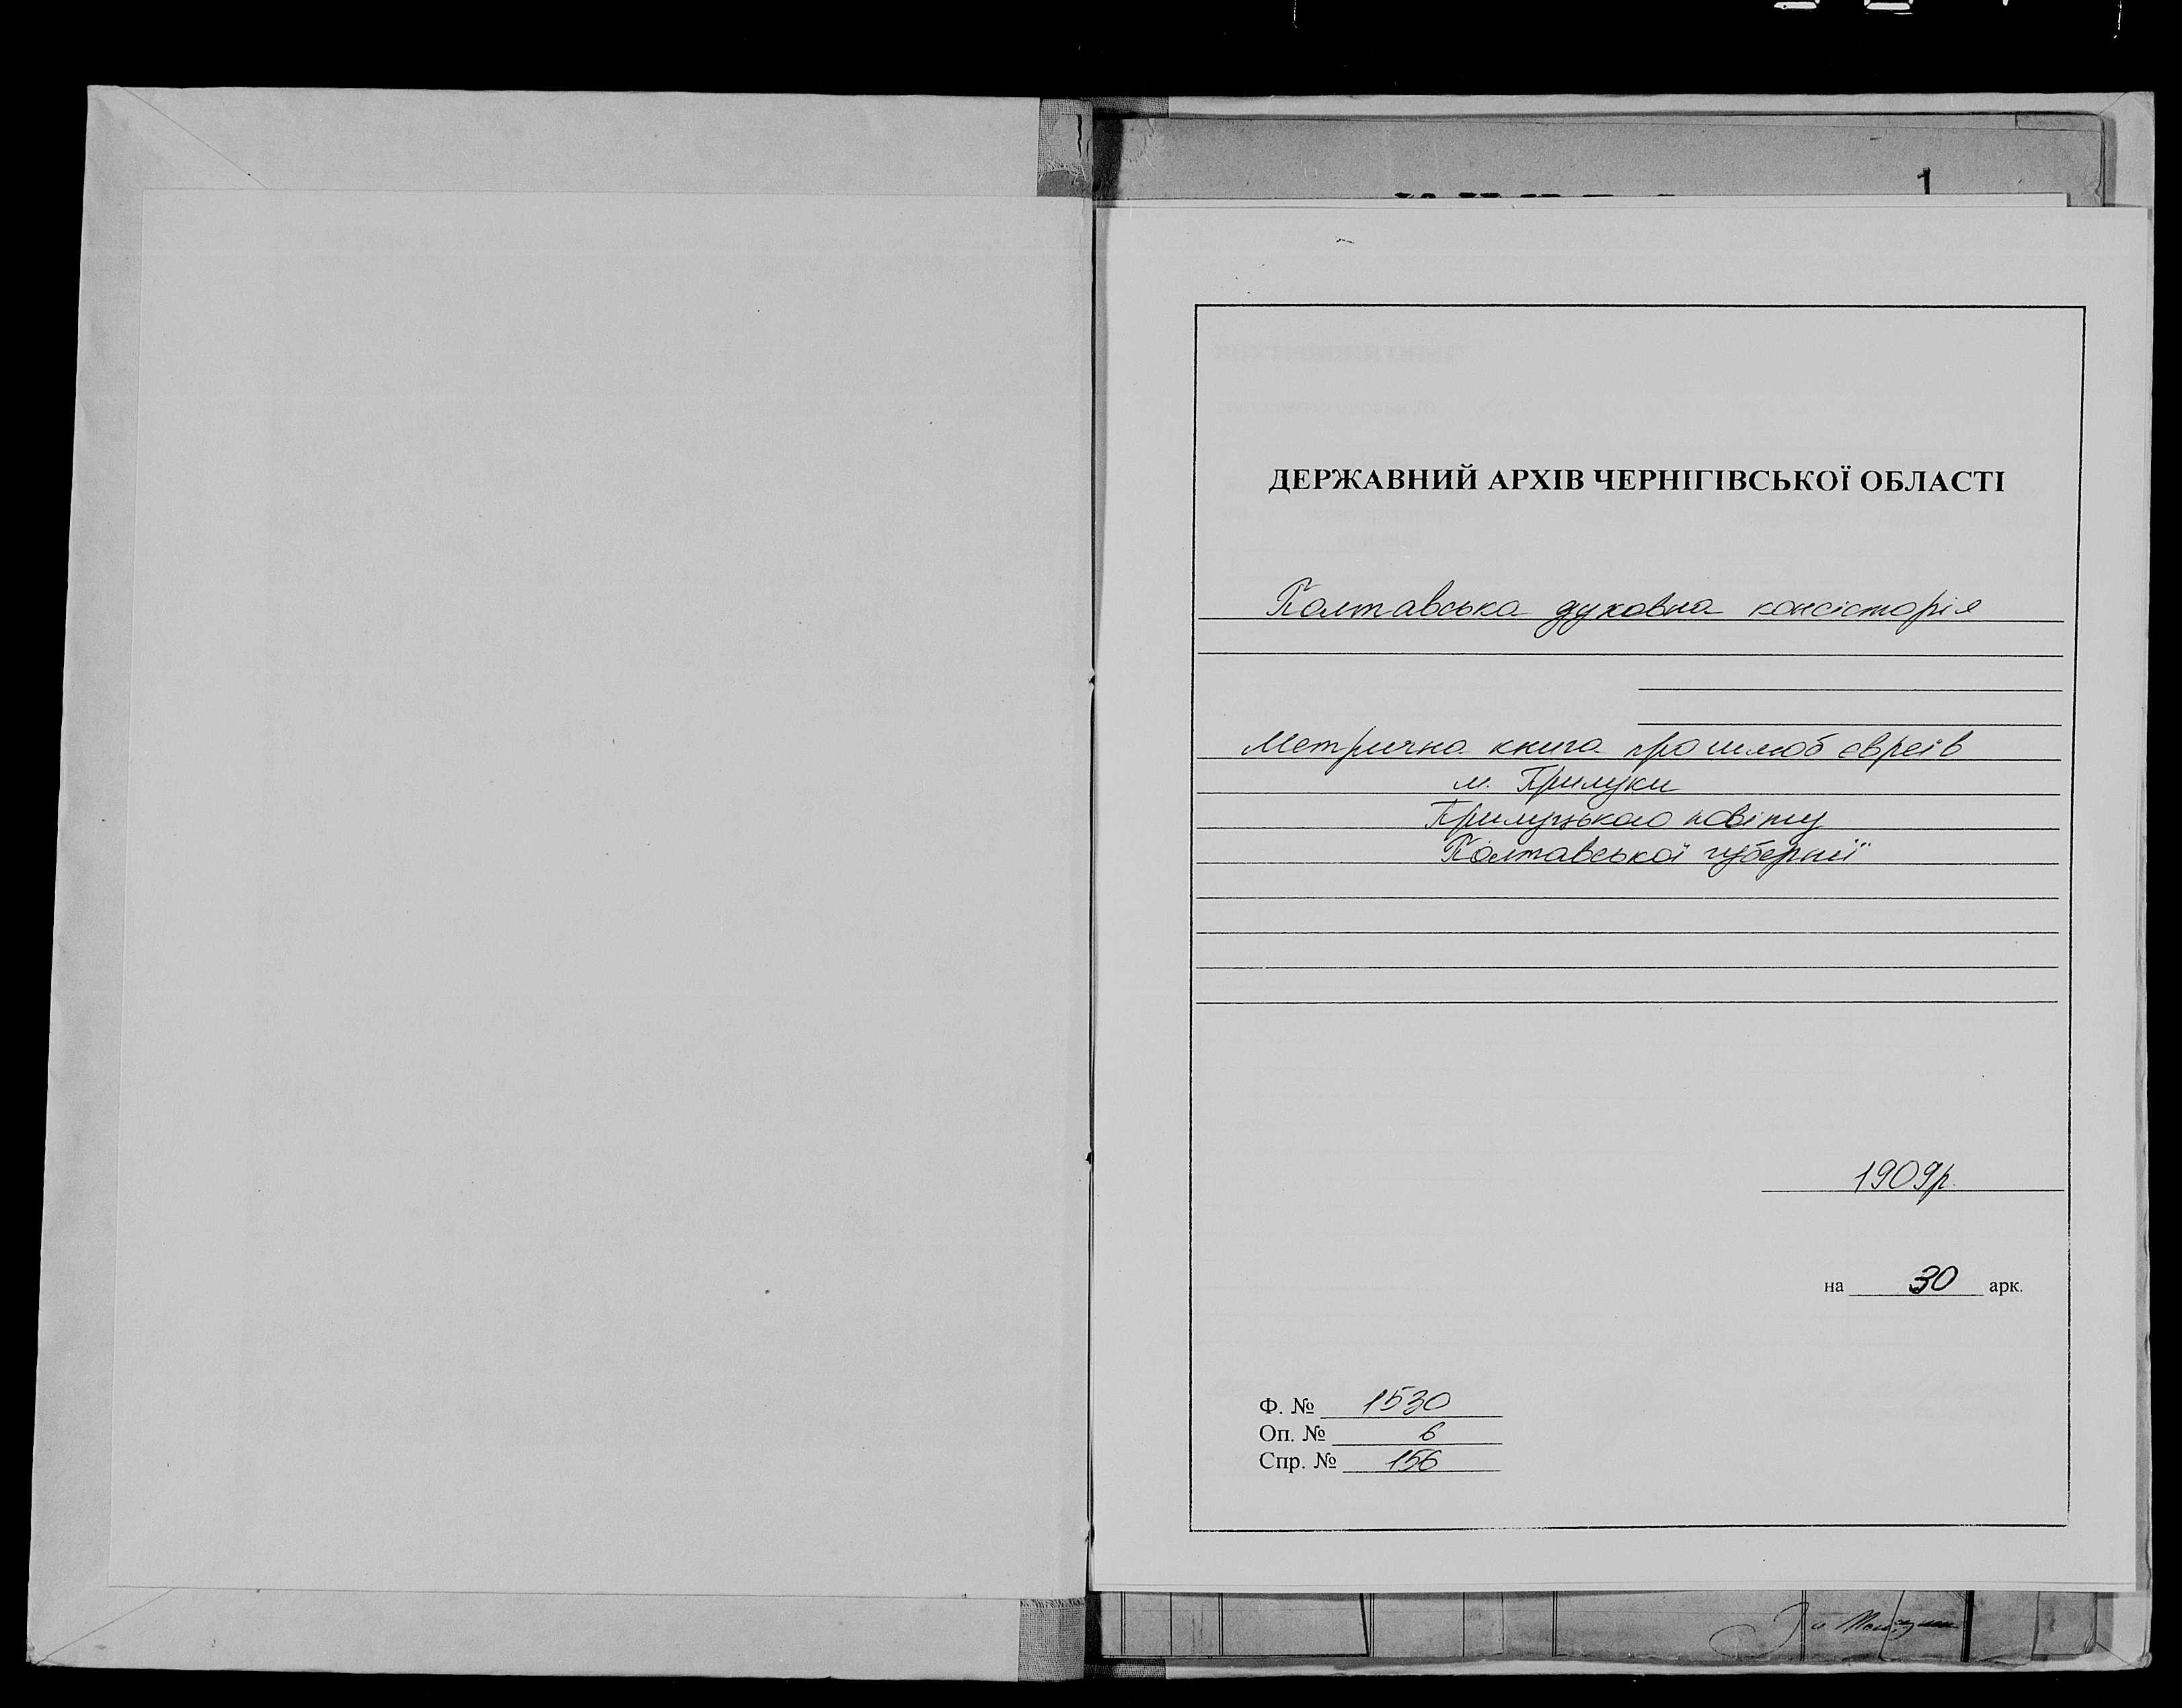 1
ДЕРЖАВНИЙ АРХІВ ЧЕРНІГІВСЬКОЇ ОБЛАСТІ
Полтавська духовна консісторія
Метрична книга про шлюб євреїв
м. Прилуки
Прилуцького повіту
Полтавської губернії
1909р.
на 30 арк.
Ф. № 1530
Оп. № 6
Спр. № 156